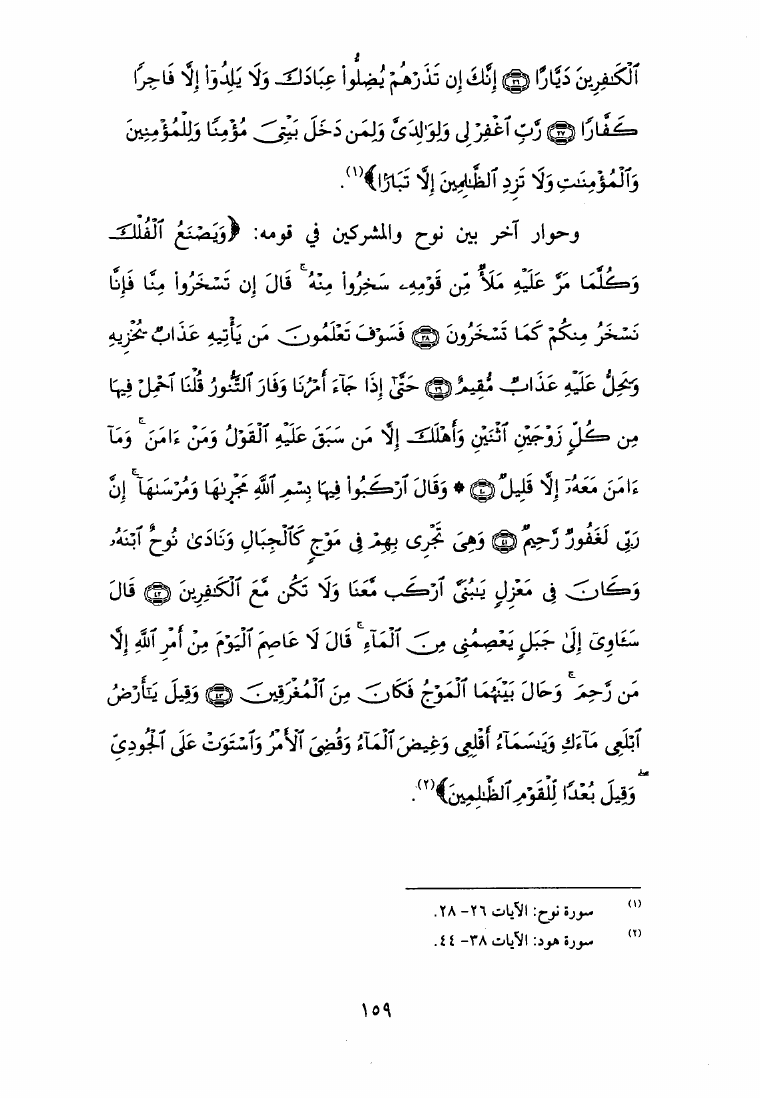 ٱلْكَـٰفِرِينَ دَيَّارًا ۝٢٦ إِنَّكَ إِن تَذَرْهُمْ يُضِلُّوا۟ عِبَادَكَ وَلَا يَلِدُوٓا۟ إِلَّا فَاجِرًا
كَفَّارًا ۝٢٧ رَّبِّ ٱغْفِرْ لِى وَلِوَٰلِدَىَّ وَلِمَن دَخَلَ بَيْتِىَ مُؤْمِنًا وَلِلْمُؤْمِنِينَ
وَٱلْمُؤْمِنَـٰتِ وَلَا تَزِدِ ٱلظَّـٰلِمِينَ إِلَّا تَبَارًۢا﴾(١).
وحوار آخر بين نوح والمشركين في قومه: ﴿وَيَصْنَعُ ٱلْفُلْكَ
وَكُلَّمَا مَرَّ عَلَيْهِ مَلَأٌ مِّن قَوْمِهِۦ سَخِرُوا۟ مِنْهُ ۚ قَالَ إِن تَسْخَرُوا۟ مِنَّا فَإِنَّا
نَسْخَرُ مِنكُمْ كَمَا تَسْخَرُونَ ۝٣٨ فَسَوْفَ تَعْلَمُونَ مَن يَأْتِيهِ عَذَابٌ يُخْزِيهِ
وَيَحِلُّ عَلَيْهِ عَذَابٌ مُّقِيمٌ ۝٣٩ حَتَّىٰٓ إِذَا جَآءَ أَمْرُنَا وَفَارَ ٱلتَّنُّورُ قُلْنَا ٱحْمِلْ فِيهَا
مِن كُلٍّ زَوْجَيْنِ ٱثْنَيْنِ وَأَهْلَكَ إِلَّا مَن سَبَقَ عَلَيْهِ ٱلْقَوْلُ وَمَنْ ءَامَنَ ۚ وَمَآ
ءَامَنَ مَعَهُۥٓ إِلَّا قَلِيلٌ ۝٤٠ * وَقَالَ ٱرْكَبُوا۟ فِيهَا بِسْمِ ٱللَّهِ مَجْر۪ىٰهَا وَمُرْسَىٰهَآ ۚ إِنَّ
رَبِّى لَغَفُورٌ رَّحِيمٌ ۝٤١ وَهِىَ تَجْرِى بِهِمْ فِى مَوْجٍ كَٱلْجِبَالِ وَنَادَىٰ نُوحٌ ٱبْنَهُۥ
وَكَانَ فِى مَعْزِلٍ يَـٰبُنَىَّ ٱرْكَب مَّعَنَا وَلَا تَكُن مَّعَ ٱلْكَـٰفِرِينَ ۝٤٢ قَالَ
سَـَٔاوِىٓ إِلَىٰ جَبَلٍ يَعْصِمُنِى مِنَ ٱلْمَآءِ ۚ قَالَ لَا عَاصِمَ ٱلْيَوْمَ مِنْ أَمْرِ ٱللَّهِ إِلَّا
مَن رَّحِمَ ۚ وَحَالَ بَيْنَهُمَا ٱلْمَوْجُ فَكَانَ مِنَ ٱلْمُغْرَقِينَ ۝٤٣ وَقِيلَ يَـٰٓأَرْضُ
ٱبْلَعِى مَآءَكِ وَيَـٰسَمَآءُ أَقْلِعِى وَغِيضَ ٱلْمَآءُ وَقُضِىَ ٱلْأَمْرُ وَٱسْتَوَتْ عَلَى ٱلْجُودِىِّ
ۖ وَقِيلَ بُعْدًا لِّلْقَوْمِ ٱلظَّـٰلِمِينَ﴾(٢).
(١) سورة نوح: الآيات ٢٦- ٢٨.
(٢) سورة هود: الآيات ٣٨- ٤٤.
١٥٩